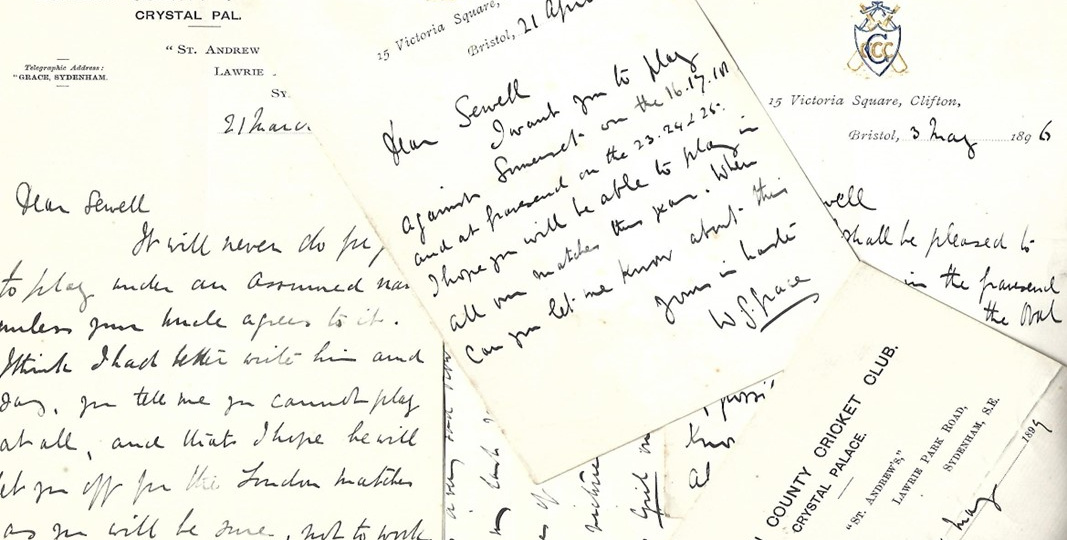 CRYSTAL PAL.
"ST. ANDREW
LAWRIE
SY
Telegraphic Address:
"GRACE, SYDENHAM.
21 Marc
Dear Sewell
It will never do for
to play under an assumed nam
unless your Uncle agrees to it.
I think I had better write him and
say, you tell me you cannot play
at all, and that I hope he will
let you off for the London matches
as you will be sure, not to work
15 Victoria Square,
Bristol, 21 Apri
Dear Sewell
I want you to play
against Somerset on the 16.17.18
and at Gravesend on the 23.24 & 25.
I hope you will be able to play in
all our matches this year. When
Can you let me know about this
Yours in haste
W.G. Grace
CCC
15 Victoria Square, Clifton,
Bristol, 3 May 1896
well
shall be pleased to
in the Gravesend
the Oval
COUNTY CRICKET CLUB.
CRYSTAL PALACE.
"ST. ANDREW'S,"
LAWRIE PARK ROAD,
SYDENHAM, S.E.
May 1899